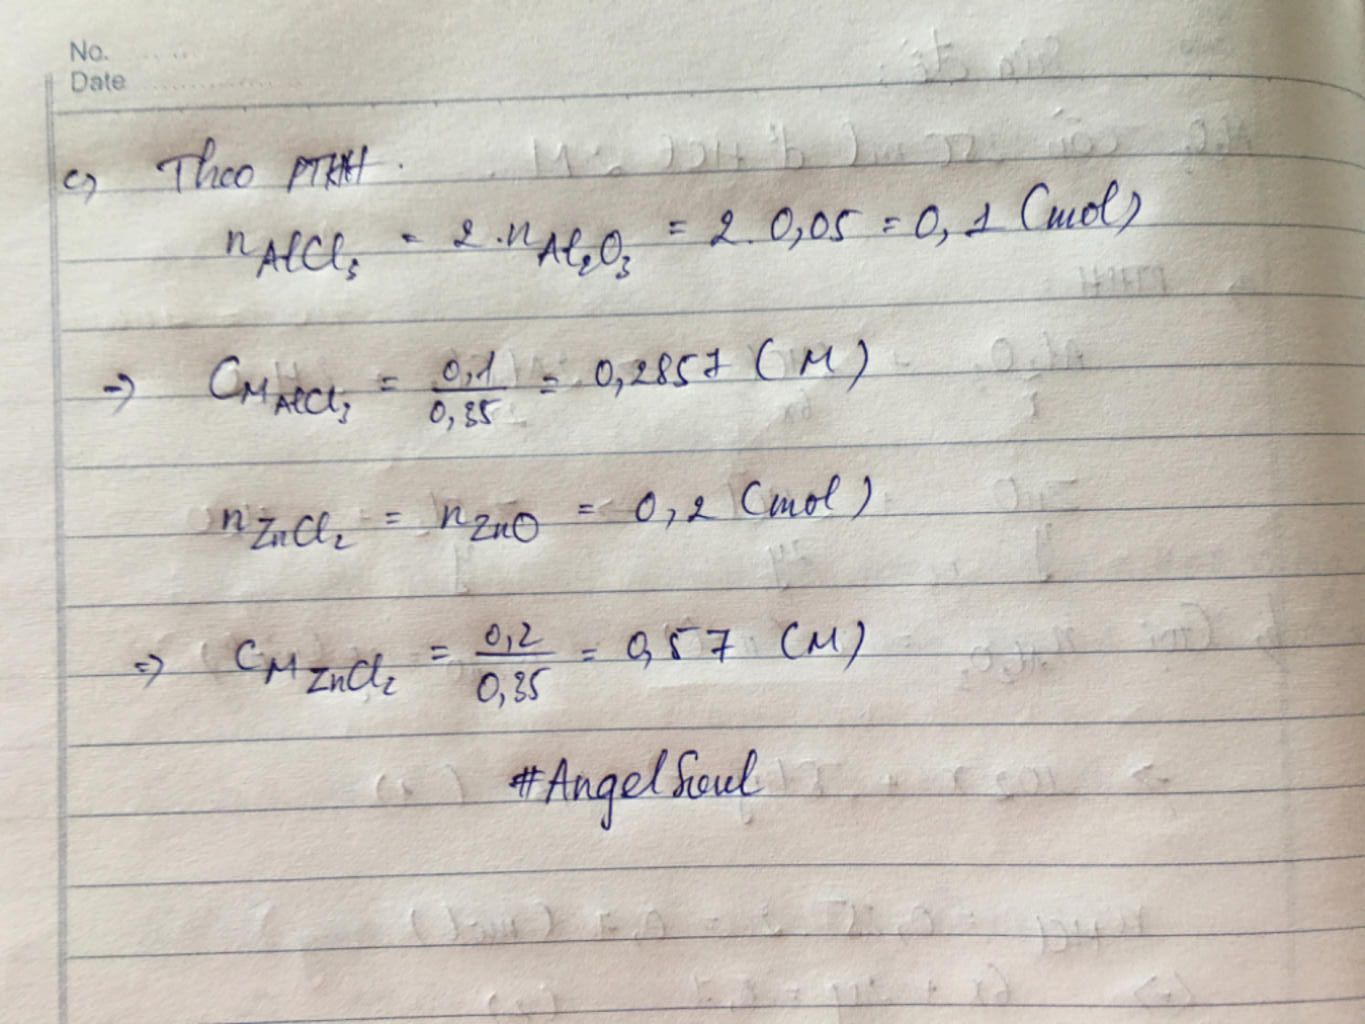 No.
Date
c, Theo PTHH.
nAlCl₃ = 2.nAl₂O₃ = 2.0,05 = 0,1 (mol)
=> CM AlCl₃ = 0,1/0,35 = 0,2857 (M)
nZnCl₂ = nZnO = 0,2 (mol)
=> CM ZnCl₂ = 0,2/0,35 = 0,57 (M)
#AngelSoul